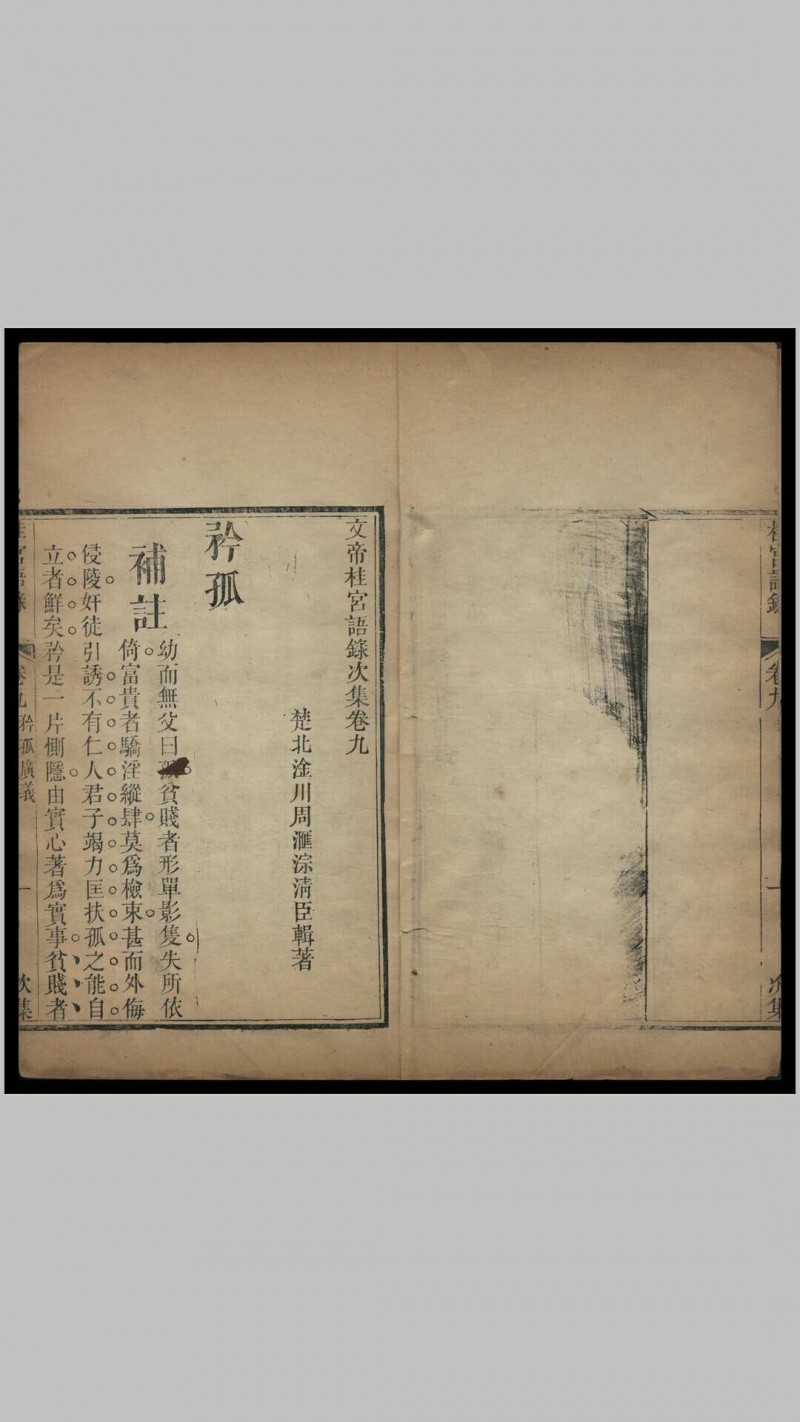 語錄
卷九
一
次集
文帝桂宮語錄次集卷九
楚北淦川周滙淙清臣輯著
矜孤
補註
幼而無父曰孤貧賤者形單影隻失所依
倚富貴者驕淫縱肆莫爲檢束甚而外侮
侵陵奸徒引誘不有仁人君子竭力匡扶孤之能自
立者鮮矣矜是一片惻隱由實心著爲實事貧賤者
桂宮語錄
卷九 矜孤廣義
一
次集